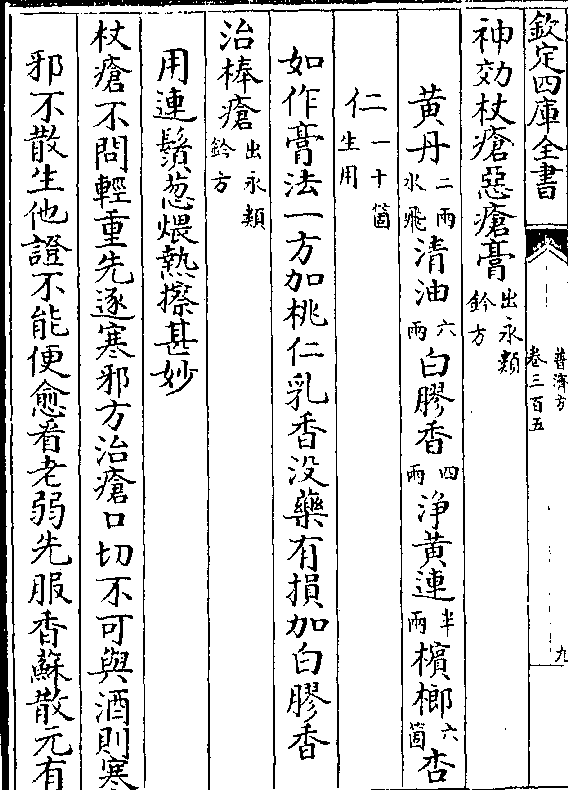 欽定四庫全書
普濟方
卷三百五
九
神効杖瘡惡瘡膏出永類鈐方
黄丹二兩水飛清油六兩白膠香四兩淨黄連半兩檳榔六箇杏
仁一十箇生用
如作膏法一方加桃仁乳香没藥有損加白膠香
治棒瘡出永類鈐方
用連鬚葱煨熱擦甚妙
杖瘡不問輕重先逐寒邪方治瘡口切不可與酒則寒
邪不散生他證不能便愈看老弱先服香蘇散元有